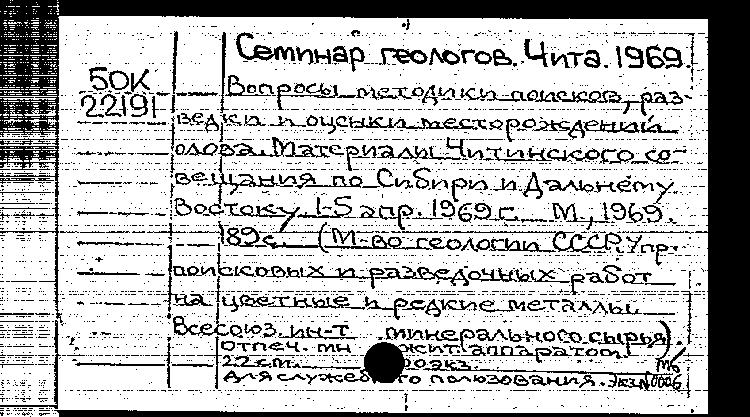 Семинар геологов. Чита. 1969.
50К
22191
Вопросы методики поисков, раз-
ведки и оценки месторождений
олова. Материалы Читинского со-
вещания по Сибири и Дальнему
Востоку. 1-5 апр. 1969 г. М., 1969.
189 с. (М-во геологии СССР. Упр.
поисковых и разведочных работ
на цветные и редкие металлы.
Всесоюз. ин-т минерального сырья).
Отпеч. мн жит. аппаратом
22 см. экз.
Для служеб го пользования. Экз. №0006